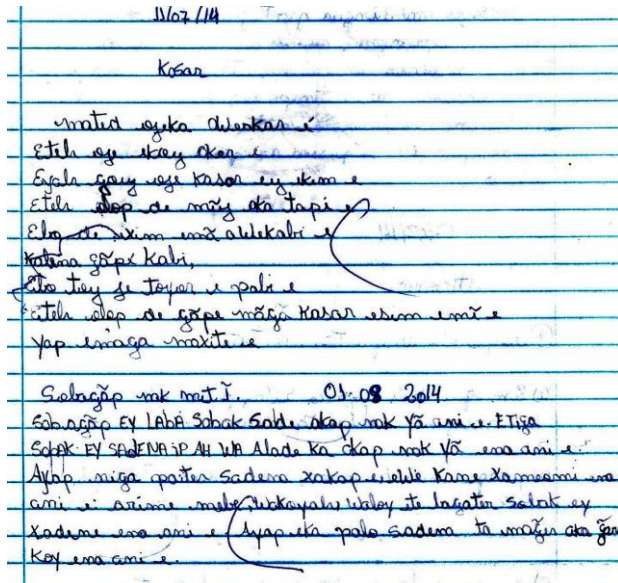 11/07/14
Kosar
mated ojeka
Eteh oje ikay oker e
Eyah goey oje Kasar ey ikim e
Eteh alop de mãy aka tapi e
Ebo de ixim emã awekabi e
Katena gõpx Kabi,
Ebo tiey je toyor e pabi e
Eteh alop de gõpe mãga Kasar esim emĩ e
yap emaga maxite e
Sobagãp mk mit Ĩ. 01-08 2014
Sobagãp EY LABA Sobak Sade akap mk Yã ani e. ETiga
SobAK EY SAdENA iP AH WA Alade Ka akap mk Yã ena ani e.
Ayap niga paiter Sadena xakap e Kane Xameomi ena
ani e: arime Waloy te Sobak ey
Xadene ena ani e Ayap eka palo Sadena ta aka
Koy ena ani e.